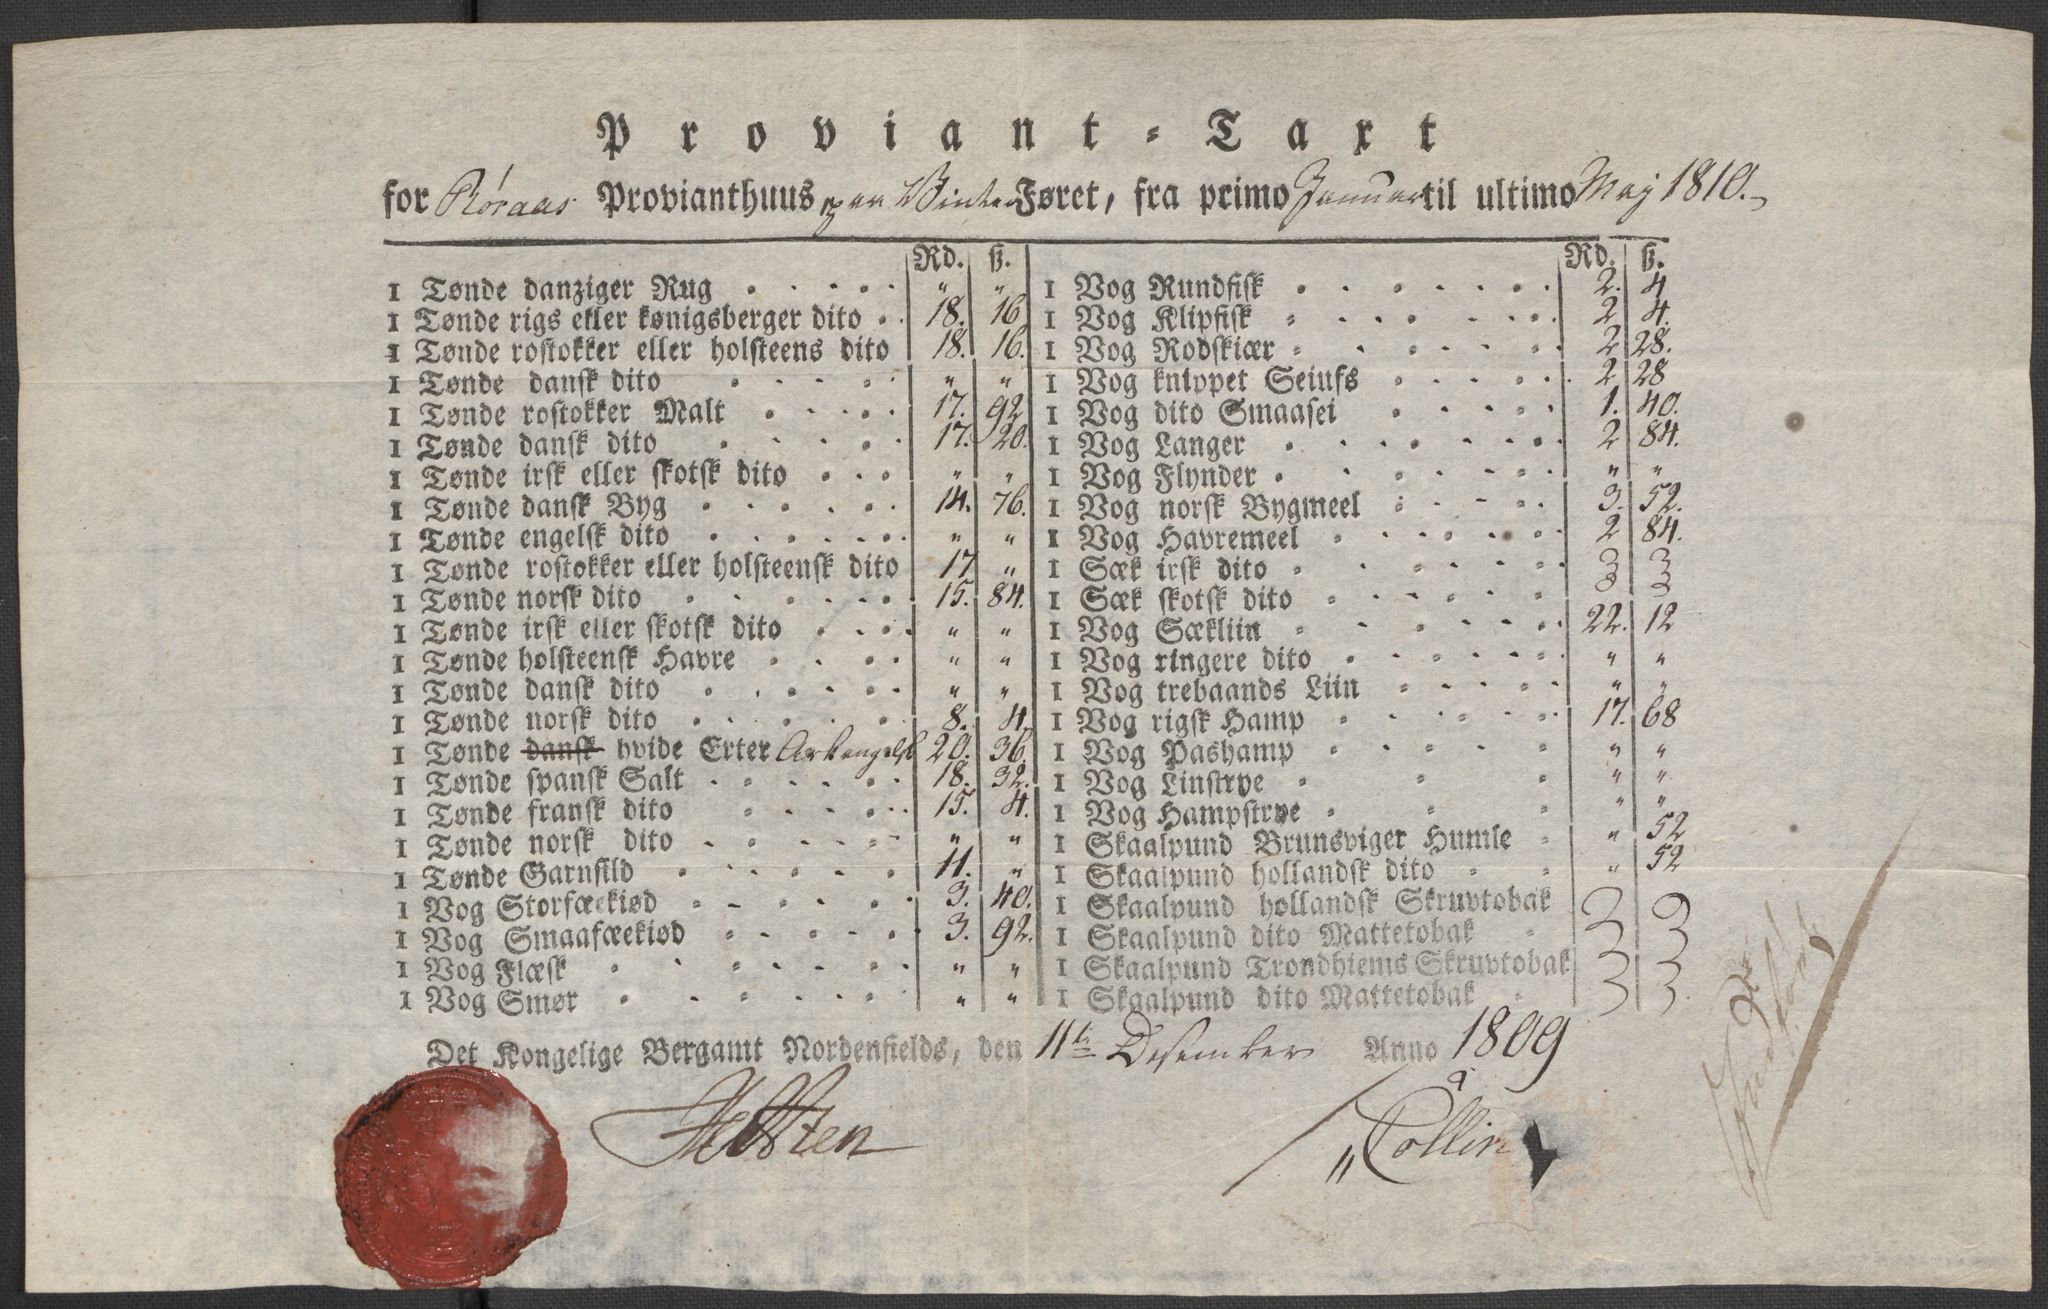 Proviant-Taxt
for Røraas Provianthuus paa Vinter Føret, fra primo Januar til ultimo May 1810.
Rd. ß.
1 Tønde danziger Rug " "
1 Tønde rigs eller kønigsberger dito 18. 16
1 Tønde rostokker eller holsteens dito 18. 16.
1 Tønde dansk dito " "
1 Tønde rostokker Malt 17. 92
1 Tønde dansk dito 17. 20.
1 Tønde irsk eller skotsk dito " "
1 Tønde dansk Byg 14. 76.
1 Tønde engelsk dito " "
1 Tønde rostokker eller holsteensk dito 17 "
1 Tønde norsk dito 15. 84.
1 Tønde irsk eller skotsk dito " "
1 Tønde holsteensk Havre " "
1 Tønde dansk dito " "
1 Tønde norsk dito 8. 4.
1 Tønde dansk hvide Erter Arkangelsk 20. 36.
1 Tønde spansk Salt 18. 32.
1 Tønde fransk dito 15. 4.
1 Tønde norsk dito " "
1 Tønde Garnsild 11. "
1 Vog Storfæekiød 3. 40.
1 Vog Smaafæekiød 3. 92.
1 Vog Flæsk " "
1 Vog Smør " "
Rd. ß.
1 Vog Rundfisk 2. 4
1 Vog Klipfisk 2 4.
1 Vog Rodskiær 2 28.
1 Vog knippet Seiufs 2 28
1 Vog dito Smaasei 1. 40.
1 Vog Langer 2 84.
1 Vog Flynder " "
1 Vog norsk Bygmeel 3. 52.
1 Vog Havremeel 2 84.
1 Sæk irsk dito
1 Sæk skotsk dito
1 Vog Sækliin 22. 12
1 Vog ringere dito " "
1 Vog trebaands Liin " "
1 Vog rigsk Hamp 17. 68
1 Vog Pashamp " "
1 Vog Linstrye " "
1 Vog Hampstrye " "
1 Skaalpund Brunsviger Humle " 52
1 Skaalpund hollandsk dito " 52
1 Skaalpund hollandsk Skruvtobak
1 Skaalpund dito Mattetobak
1 Skaalpund Trondhiems Skruvtobak
1 Skaalpund dito Mattetobak
Det Kongelige Bergamt Nordenfields, den 11te Desember Anno 1809
Collin